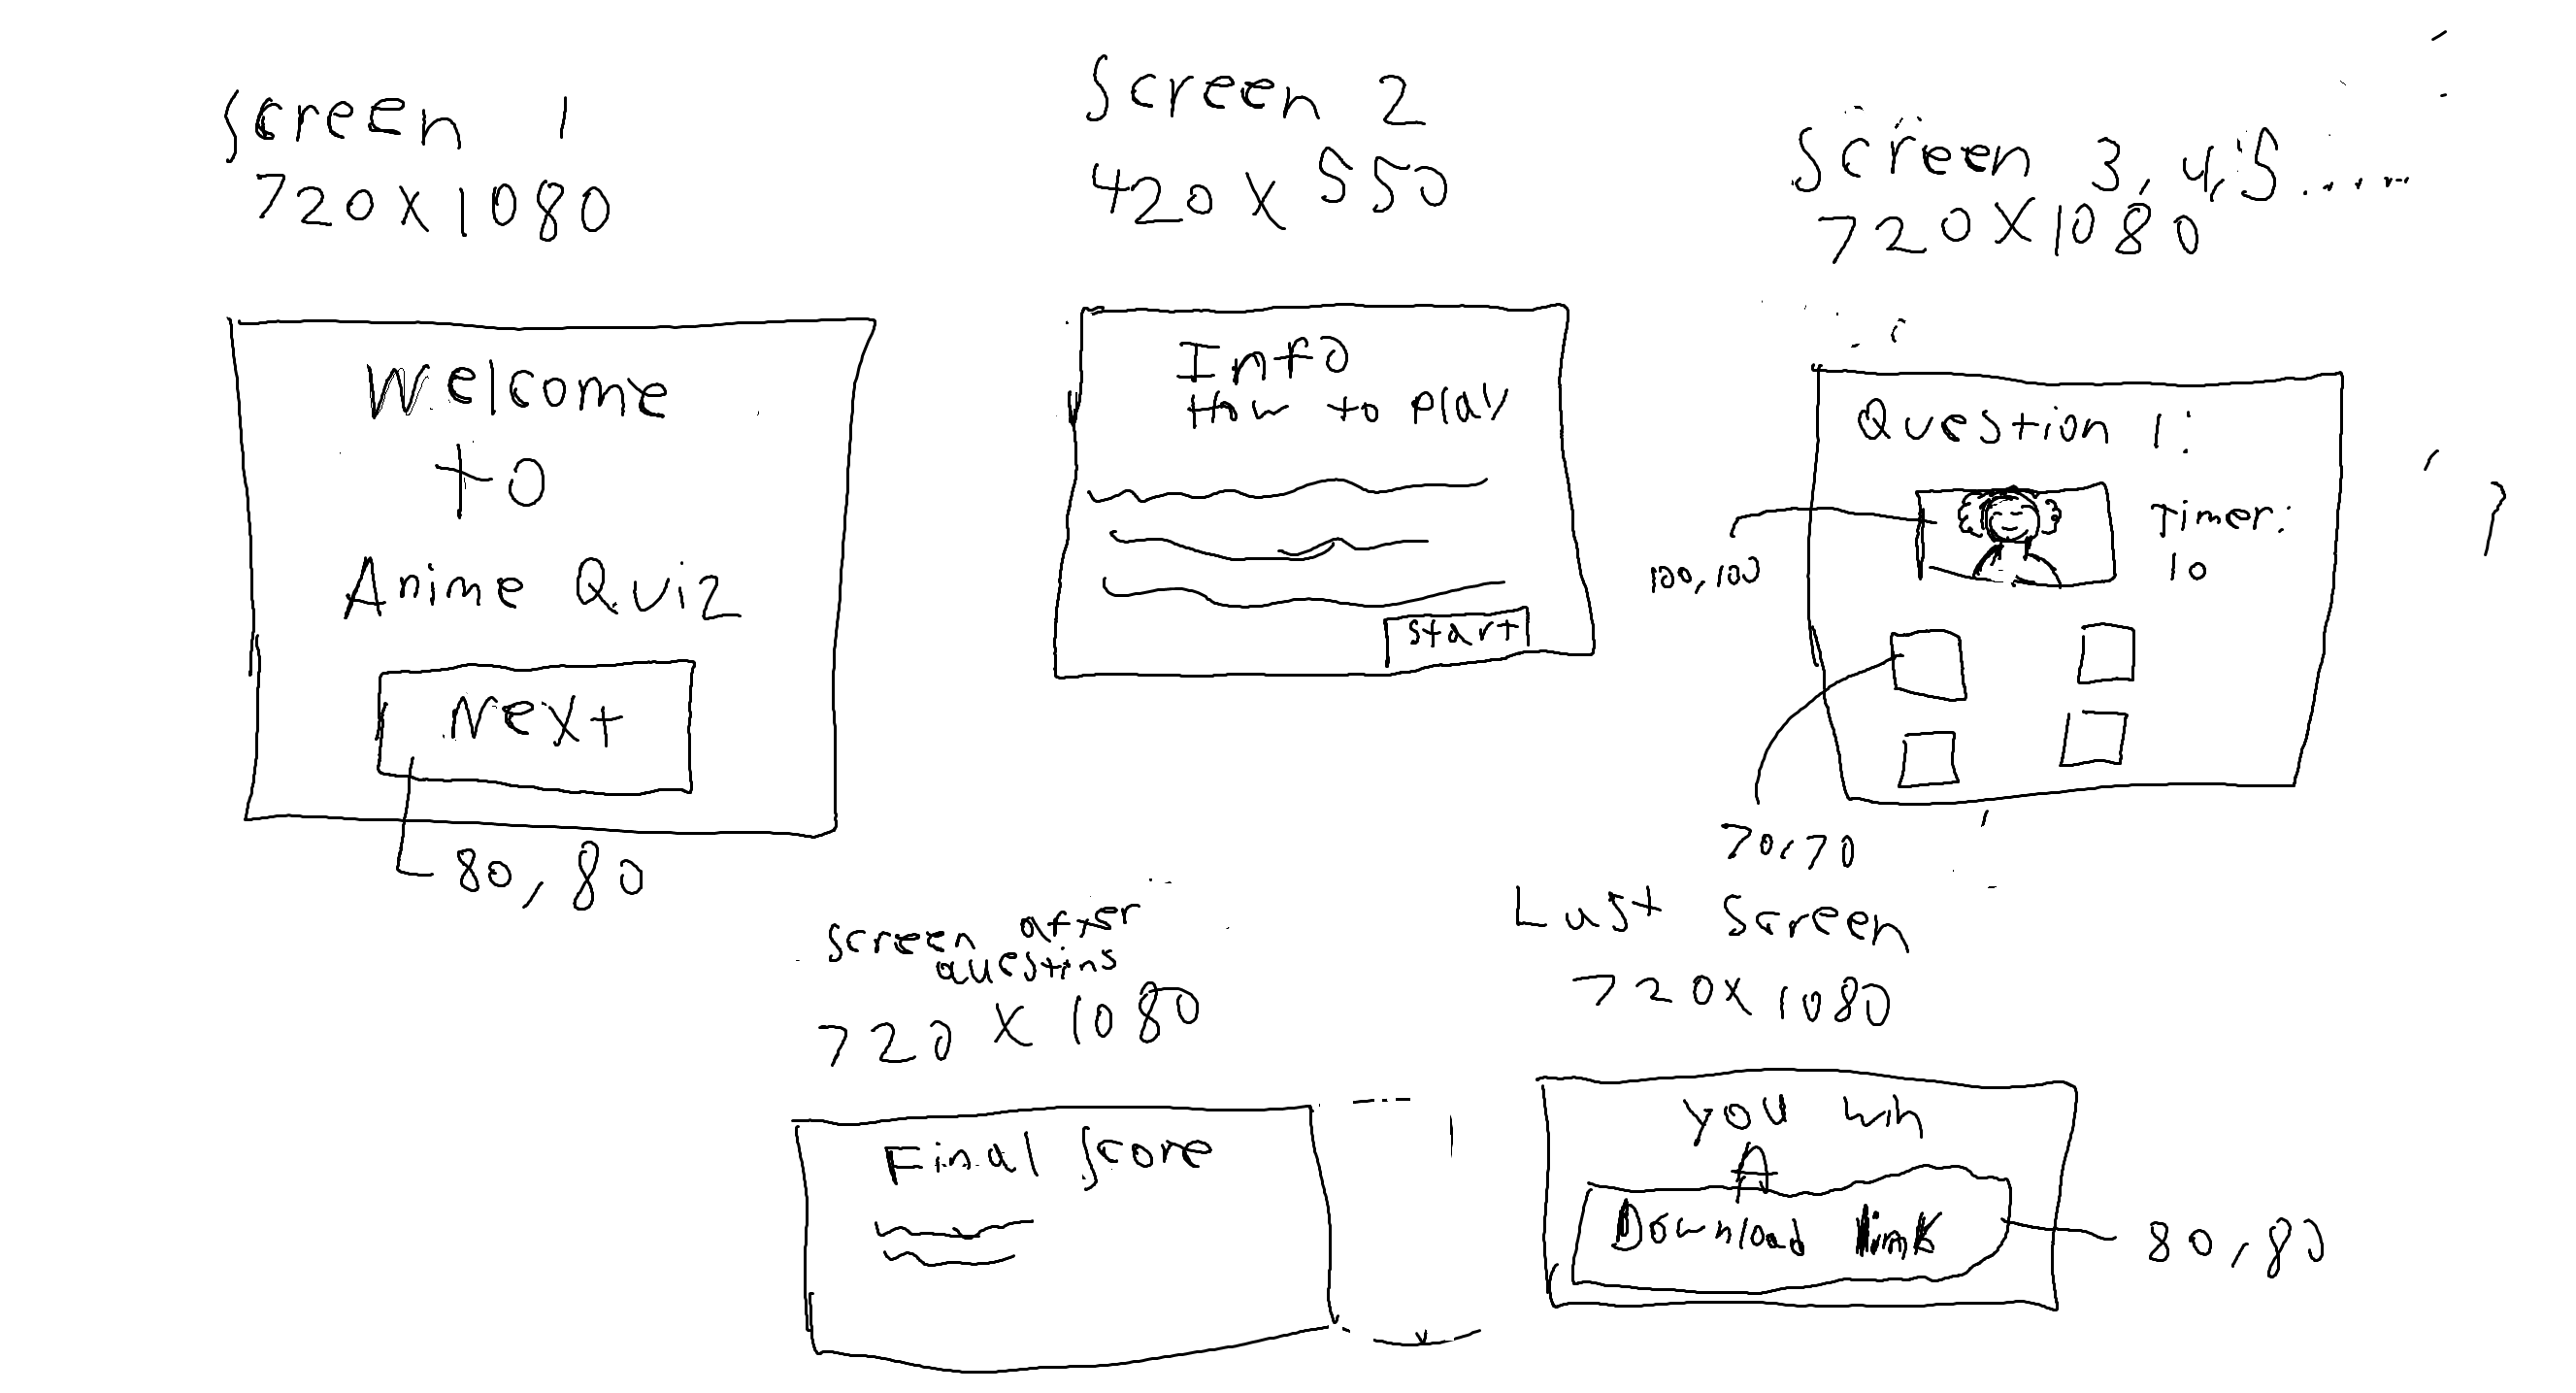 Screen 1
720 X 1080
Welcome
to
Anime Quiz
Next
80, 80
Screen 2
420 X 550
Info
How to play
start
Screen 3, 4, 5 .....
720 X 1080
Question 1:
Timer:
10
100, 100
70, 70
screen after
questins
720 X 1080
Final Score
Last Screen
720 X 1080
you win
A
Download link
80, 80